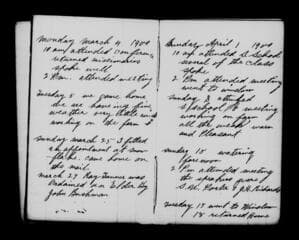 Monday March 4 1900
10 am attended Conferenc
returned missionaries
spoke well
2 P.m. attended meeting
Tuesday 5 we came home
we are having fine
weather very little wind
working on the farm
Sunday march 25 I filled
an appointment at Snow-
flake. came home on
the mail.
march 29 Ray Tanner was
Ordained an Elder By
John Bushman
Sunday April 1 1900
10 am attended S. School
several of the class
spoke
2 Pm attended meeting
went to winslow
Sunday 8 attended
S. school & meeting
working on farm
all the week warm
and Pleasant
Sunday 15 watering
forenoon
2 Pm attended meeting
the speakers were
Tuesday 17 went to Winslow
18 returned Home